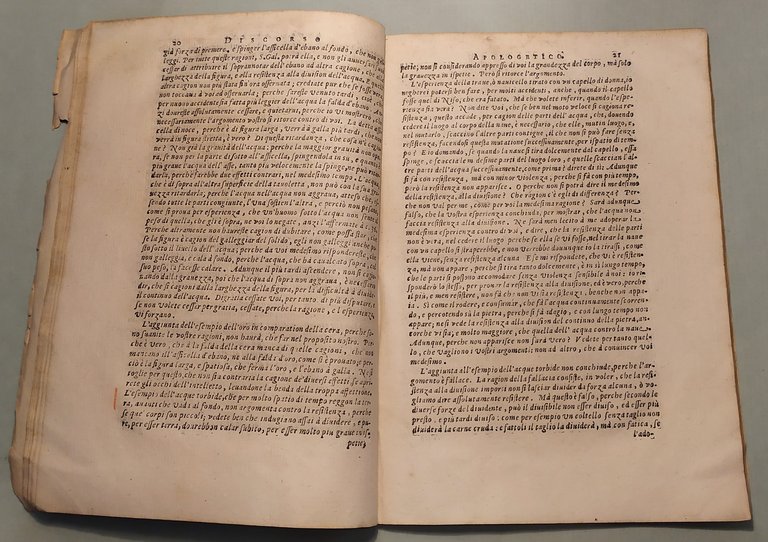 20 DISCORSO
già forza di premere, e spinger l'assicella d'ebano al fondo, che non
leggi. Per tutte queste ragioni, S. Gal. potrà ella, e non gli auuersarij
cessar di attribuire il soprannotar dell'ebano ad altra cagione, che alla
larghezza della figura, e alla resistenza alla diuisione dell'acqua.
altra cagion non più stata fin'ora osseruata; crediate pur che se fosse
non toccaua à voi ad osseruarla, perche sareste Venuto tardi
per nuouo accidente sia fatta più leggier dell'acqua la falda d'ebano
zi doureste assolutamente cessare, e quietarui, perche io vi mostrerò, che
necessariamente l'argomento vostro si ritorce contro di voi. La detta
cella di noce, perche è di figura larga, Verrà à galla più tardi, che non
verrà in figura stretta, è vero? Di questa ritardanza, che cosa n'è cagio
ne? Non già la grauità dell'acqua: perche la maggior grauità non ope
ra, se non per la parte di sotto all'assicella, spingendola in su, e quanto
la piu graue acqua dell'asse, tanto piu velocemente la spinge, nè può ritar
darla, perche farebbe due effetti contrarij, nel medesimo tempo. L'acqua
che è di sopra all'altra superficie della tauoletta, non può con la sua gra
uezza ritardarla, perche l'acqua nell'acqua non aggraua, atteso che es
sendo tutte le parti congiunte, l'Vna sostien l'altra, e perciò non pesano
come si proua per esperienza, che Vn'huomo sotto l'acqua non sente
peso di quella, che gli è sopra, ne voi lo negate, anzi l'affermate à c.
Perche altramente non haureste cagion di dubitare, come dubitate, che
se la figura è cagion del galleggiar del solido, egli non galleggi anche
sotto il liuello dell'acqua; perche da voi medesimo rispondereste, che
non galleggia, e cala à fondo, perche l'acqua, che hà caualcato sopra, co'l
suo peso, la fa cosse calare. Adunque il più tardi ascendere, non si cagio
nando dalla grauezza, poi che l'acqua di sopra non aggraua, è necessario
che si cagioni dalla larghezza della figura, per la difficultà à diuidere
il continuo dell'acqua. Digratia cessate voi, per tanto, di più disputare, e
se non volete cessar per gratia, cessate, perche la ragione, e l'esperienza
vi forzano.
L'aggiunta dell'esempio dell'oro in comparatione della cera, perche so
no suanite le vostre ragioni, non haurà, che far nel proposito nostro. E
perch'è Vero, che à la falda della cera manca di quelle cagioni, che non
mancano all'assicella d'ebano, nè alla falda d'oro, come si è prouato; e per
ciò è spatiosa, che ferma l'oro, e l'ebano à galla. Nè si
toglie per questo, che non sia contraria la cagione de'diuersi effetti se apri
rete gli occhi dell'intelletto, leuandone la benda della troppa affettione.
L'esempi dell'acque torbide, che per molto spatio di tempo reggon la ter
ra, auanti che vadi al fondo, non argomenta contro la resistenza, perche
se que' corpi son piccoli, vedete ben che indugiano assai à diuidere, e pu
re, per esser terra, dourebbon calar subito, per esser molto più graue in is-
petie;
APOLOGETICO. 21
petie; non si considerando appresso di voi la grandezza del corpo, mà solo
la grauezza in ispetie. Però si ritorce l'argomento.
L'esperienza della traue, ò nauicello tirato con vn capello di donna, io
negherei potersi ben fare, per molti accidenti, anche, quando il capello
fosse quel di Niso, che era fatale. Mà che volete inferir, quando l'espe-
rienza sia vera? Non dite Voi, che se ben nel moto veloce si cagiona re
sistenza, questo accade, per cagion delle parti dell'acqua, che, douendo
cedere il luogo al corpo della naue, è necessario, che elle, mutin luogo, e
nel mutarsi, scaccion l'altre parti contigue, il che non si può fare senza
tempo, facendosi questa mutatione successiuamente, per ispatio di tem-
po? E io domando, se quando la naue si tira dolcemente dal capello, essa
spinge, e scaccia le medesime parti del luogo loro, e quelle scaccian l'al
tre parti dell'acqua successiuamente, come prima? direte di sì: Adunque
si fà con resistenza, mà con minor Violenza, perche si fa in più tempo,
però la resistenza non apparisce. O perche non si potrà dire il medesimo
della resistenza alla diuisione? Che ragion c'è egli di disuguaglianza? Per-
che non Val per me, come per voi la medesima ragione? Sarà adunque
falso, che la Vostra esperienza conchiuda, per mostrar, che l'acqua non
faccia resistenza alla diuisione. Ne vi sarà lecito à me di ritorcere la
medesima esperienza contro di voi, e dire, che la resistenza delle parti
non è vera, nel cedere il luogo perche se ella Vi fosse, nel tirar la naue
con vn capello si strapperebbe, e non Verrebbe douunque tu la tirassi, come
ella Viene, senza violenza alcuna? E se mi rispondete, che Vi è resisten
za, mà non appare, perche si tira tanto dolcemente, è in sì lungo tempo,
che le parti si possono accomodare senza Violenza sensibile à noi: rispon-
derò lo stesso, per prouar la resistenza alla diuisione, ed è vero, perche
il più, e men resistere, non fà che non vi sia resistenza, benche non appa
ia. Sì come il rodere, e consumar, che fà l'acqua continuamente scorren-
do, e percotendo sù la pietra, perche si fà adagio, e con lungo tempo non
appare, ne si vede la resistenza alla diuision del continuo della pietra, an-
corche vi sia, e molto maggiore, che quella dell'acqua contro la naue
Adunque, perche l'argomento non sarà Vero? Vedete per tanto quel-
lo, che Vagliono i Vostri argomenti; non ad altro, che à conuincer Voi
medesimo.
L'aggiunta all'esempio dell'acque torbide non conchiude, perche l'ar-
gomento è fallace. La cagion della fallacia consiste, in questo, che la resi-
stenza alla diuisione: importi non si lasciar diuider da forza alcuna, ò vo
gliamo dire assolutamente resistere. Mà questo è falso, perche secondo le
diuerse forze del diuidente, può il diuisibile non esser diuiso, ed esser più
presto, e più tardi diuiso: come per esempio Vn coltello senza taglio non
diuiderà la carne cruda: e fattoli il taglio la diuiderà, mà con fatica, se
l'ado-